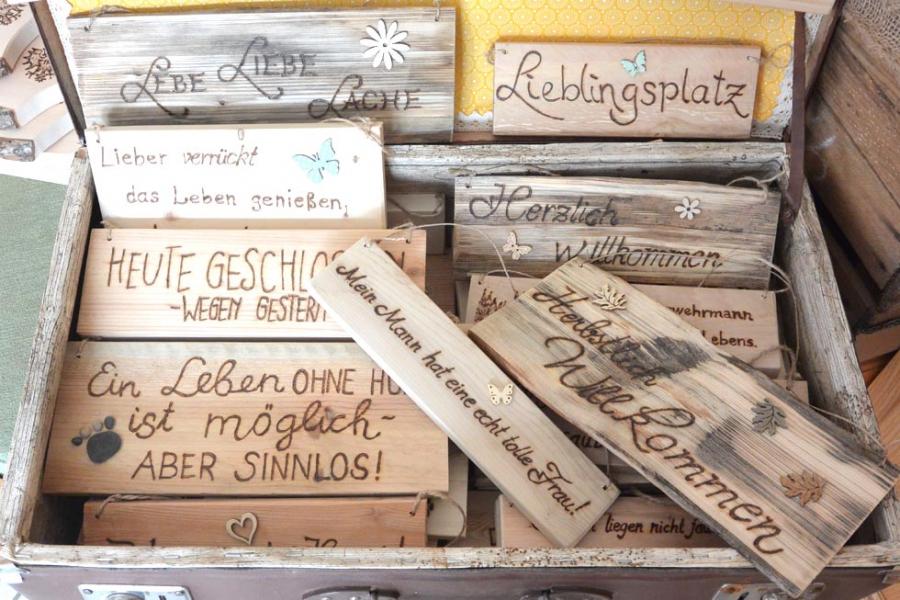 LEBE LIEBE
LACHE
Lieblingsplatz
Lieber verrückt
das Leben genießen,
Herzlich
Willkommen
HEUTE GESCHLOS
-WEGEN GESTERN
Mein Mann hat eine echt tolle Frau!
Herbstlich
Willkommen
wehrmann
Lebens.
Ein Leben OHNE HU
ist möglich-
ABER SINNLOS!
liegen nicht